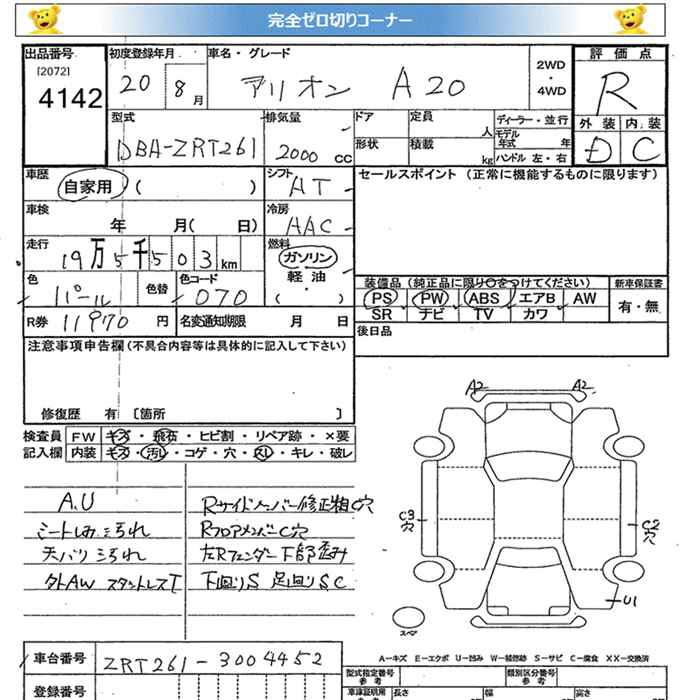 完全ゼロ切りコーナー
出品番号
[2072]
4142
初度登録年月
20 8 月
車名・グレード
アリオン A20
2WD
・
4WD
評価点
R
外装 内装
D C
型式
DBA-ZRT261
排気量
2000 CC
ドア
形状
定員
人
積載
kg
ディーラー・並行
モデル
年式 年
ハンドル 左・右
車歴
自家用 ( )
シフト
AT
セールスポイント (正常に機能するものに限ります)
車検
年 月( 日)
冷房
AAC
走行
19万5千503km
燃料
ガソリン
・
軽油
( ・ )
色
パール
色替
色コード
070
装備品(純正品に限り○をつけてください)
新車保証書
PS PW ABS エアB AW
SR ナビ TV カワ
有・無
R券 11970 円
名変通知期限 月 日
後日品
注意事項申告欄(不具合内容等は具体的に記入して下さい)
修復歴 有 〔箇所 〕
検査員
記入欄
FW キズ・飛石・ヒビ割・リペア跡・×要
内装 キズ・汚レ・コゲ・穴・スレ・キレ・破レ
A.U
シートしみ よごれ
天バリ よごれ
外AW スタットレスT
Rサイドメンバー修正粗C穴
RフロアメンバーC穴
左Rフェンダー下部歪み
下回りS 足回りS,C
A2
A2
C3
穴
C2
穴
U1
スペア
A-キズ E-エクボ U-凹み W-補修跡 S-サビ C-腐食 XX-交換済
車台番号
ZRT261-3004452
登録番号
型式指定番号
参考
類別区分番号
参考
車庫証明用
長さ
幅
高さ